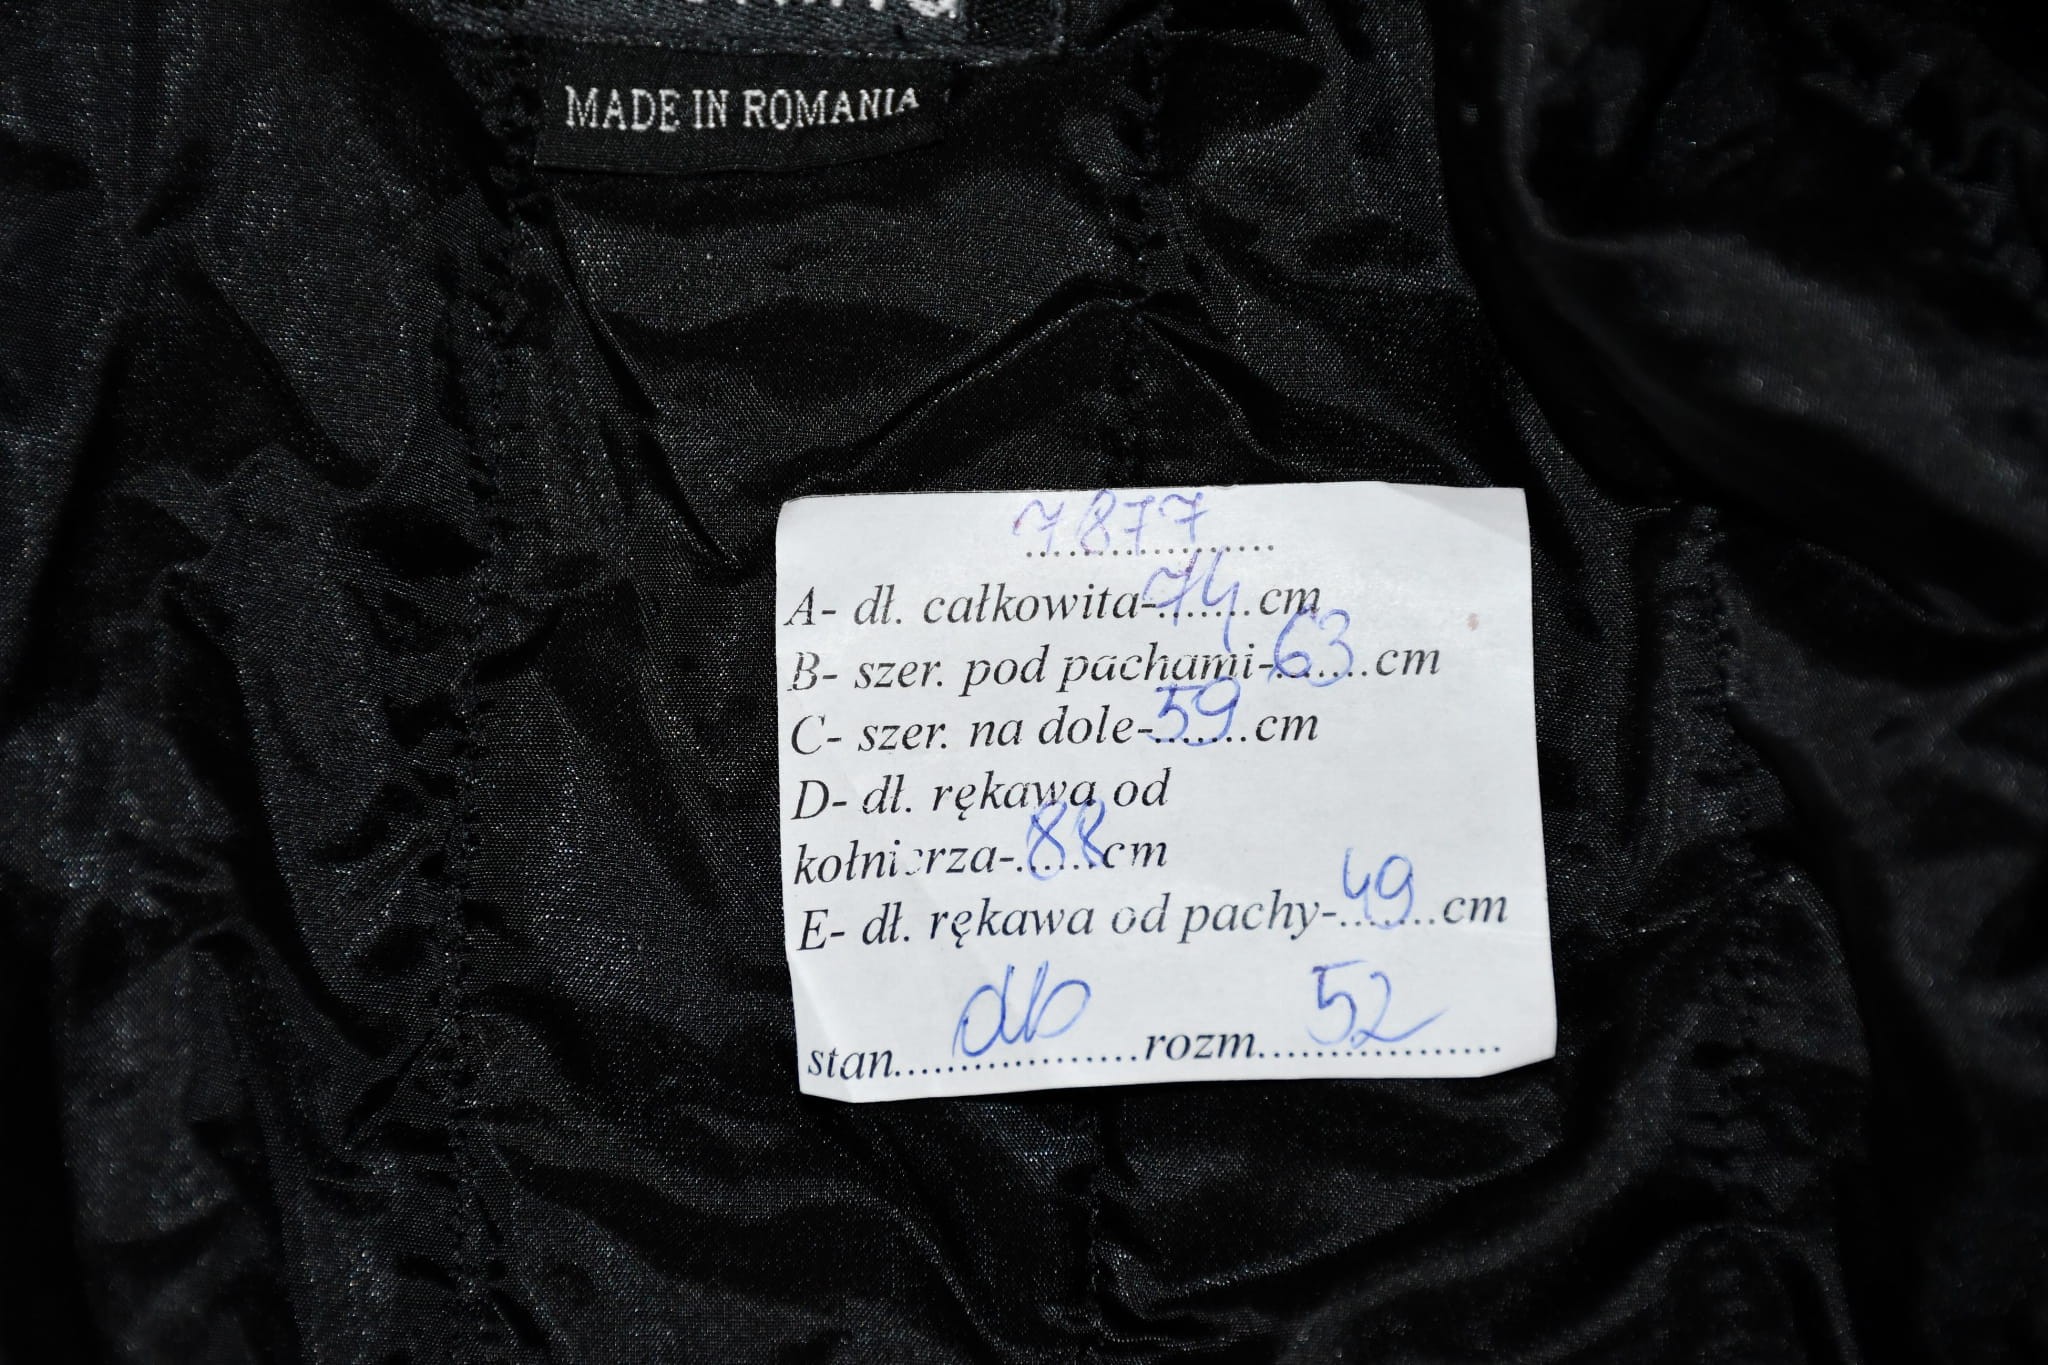 MADE IN ROMANIA
7877
A- dł. całkowita-74cm
B- szer. pod pachami-63cm
C- szer. na dole-59cm
D- dł. rękawa od
kołnierza-88cm
E- dł. rękawa od pachy-49cm
stan....db....rozm....52....